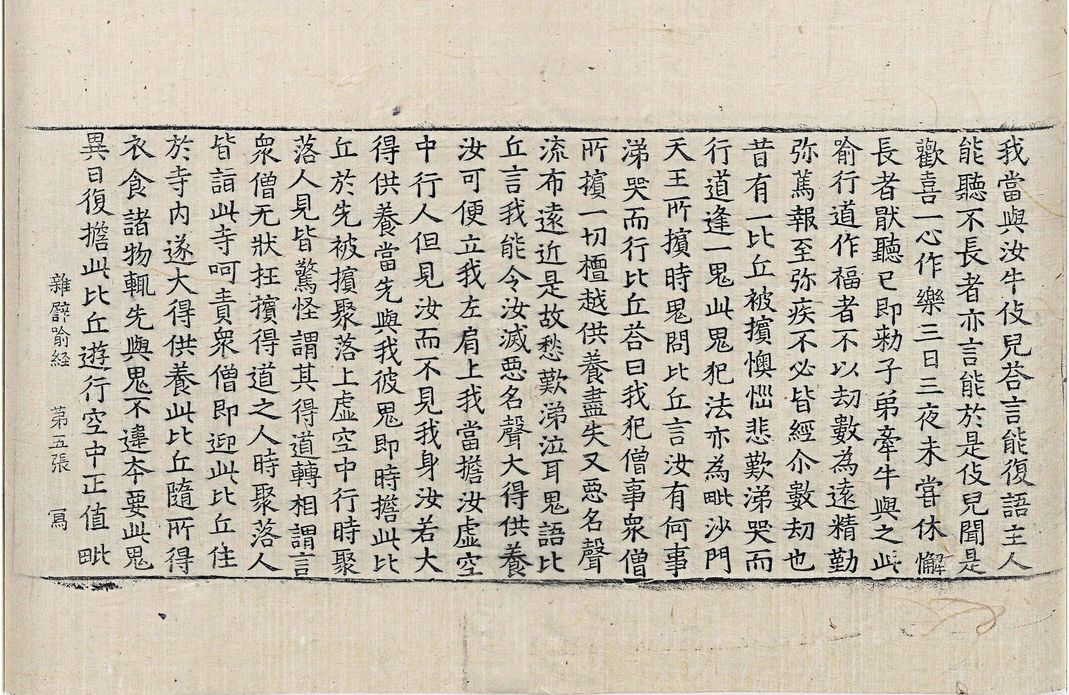 我當與汝牛伎兒荅言能復語主人
能聽不長者亦言能於是伎兒聞是
歡喜一心作樂三日三夜未甞休懈
長者猒聽已即勑子弟牽牛與之此
喻行道作福者不以劫數為遠精勤
弥篤報至弥疾不必皆經尒數劫也
昔有一比丘被擯懊惱悲歎涕哭而
行道逢一鬼此鬼犯法亦為毗沙門
天王所擯時鬼問比丘言汝有何事
涕哭而行比丘荅曰我犯僧事衆僧
所擯一切檀越供養盡失又惡名聲
流布遠近是故愁歎涕泣耳鬼語比
丘言我能令汝滅惡名聲大得供養
汝可便立我左肩上我當擔汝虛空
中行人但見汝而不見我身汝若大
得供養當先與我彼鬼即時擔此比
丘於先被擯聚落上虛空中行時聚
落人見皆驚怪謂其得道轉相謂言
衆僧无狀抂擯得道之人時聚落人
皆詣此寺呵責衆僧即迎此比丘住
於寺内遂大得供養此比丘隨所得
衣食諸物輒先與鬼不違本要此鬼
異日復擔此比丘遊行空中正值毗
雜譬喻経　第五張　寫